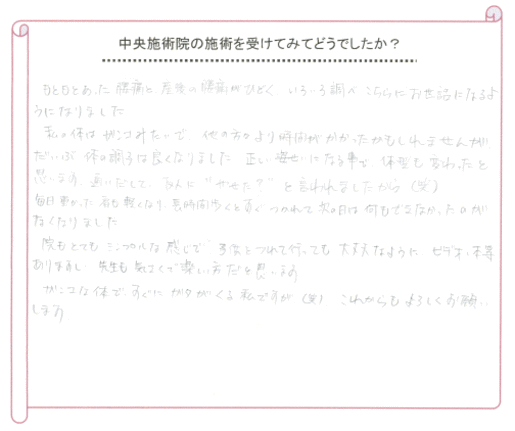 中央施術院の施術を受けてみてどうでしたか？
もともとあった腰痛と産後の腰痛がひどく、いろいろ調べこちらにお世話になるよ
うになりました
私の体はガンコみたいで他の方々より時間がかかったかもしれませんが
だいぶ体の調子は良くなりました 正しい姿せいになる事で体型も変わったと
思います。通いだして、友人に"やせた?"と言われましたから(笑)
毎日重かった肩も軽くなり、長時間歩くと直ぐつかれて次の日は何もできなかったのが
なくなりました
院もとてもシンプルな感じで子供とつれて行っても大丈夫なようにビデオ、本等
ありますし、先生も気さくで楽しい方だと思います
ガンコな体で、すぐにガタがくる私ですが(笑) これからもよろしくお願い
します